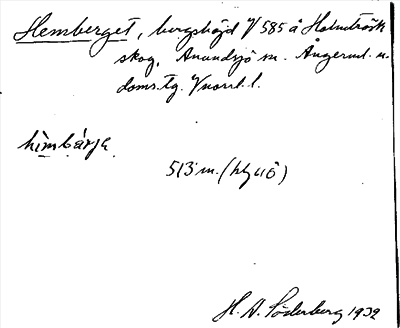 Hemberget, bergshöjd V 585 å Holmträsk
skog, Anundsjö sn. Ångerml. n.
doms.tg. Vnorrl. l.
hìmbárjə
513 m.
H. A. Söderberg 1932